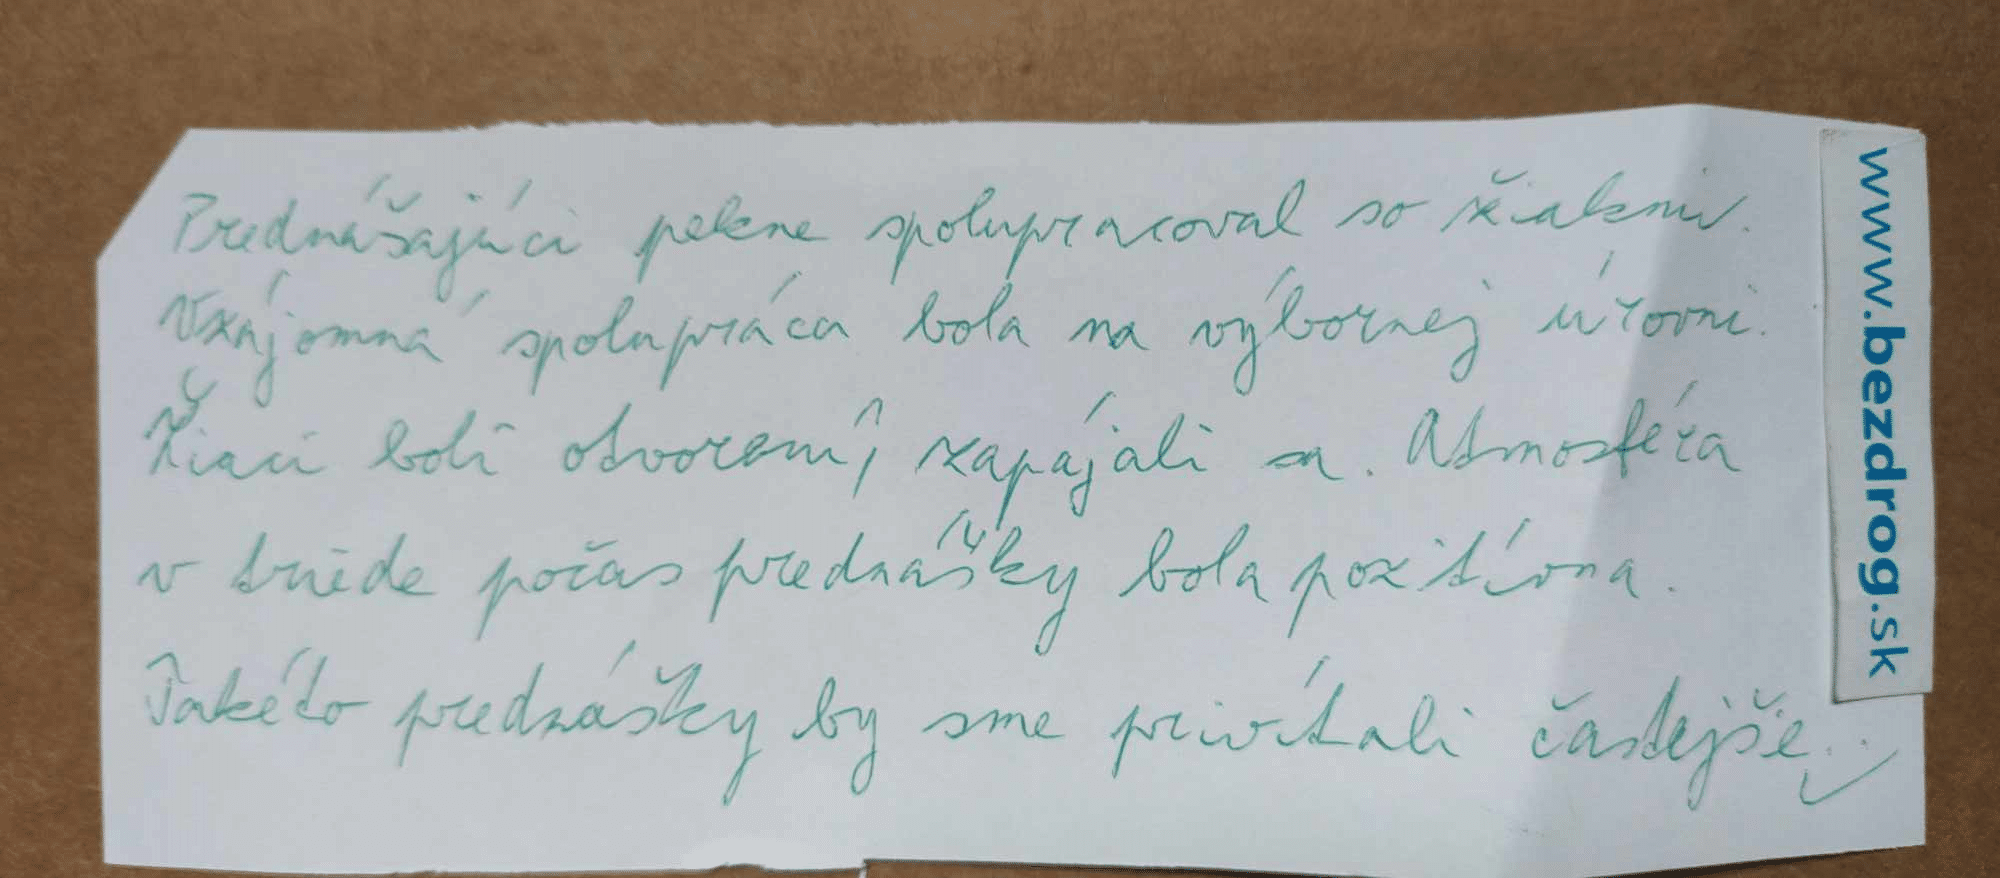 Prednášajúci pekne spolupracoval so žiakmi.
Vzájomná spolupráca bola na výbornej úrovni.
Žiaci boli otvorení, zapájali sa. Atmosféra
v triede počas prednášky bola pozitívna.
Takéto prednášky by sme privítali častejšie.
www.bezdrog.sk